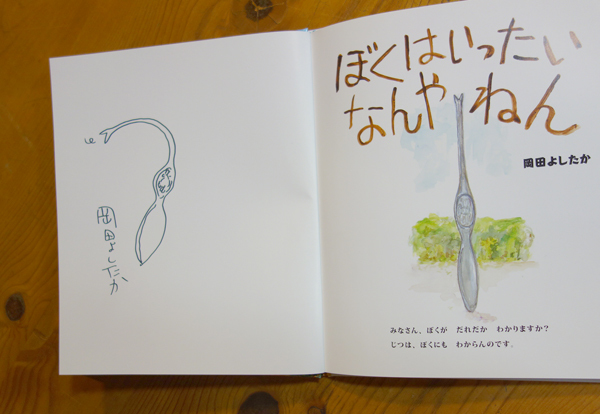 岡田よしたか
ぼくはいったい
なんやねん
岡田よしたか
みなさん、ぼくが だれだか わかりますか?
じつは、ぼくにも わからんのです。